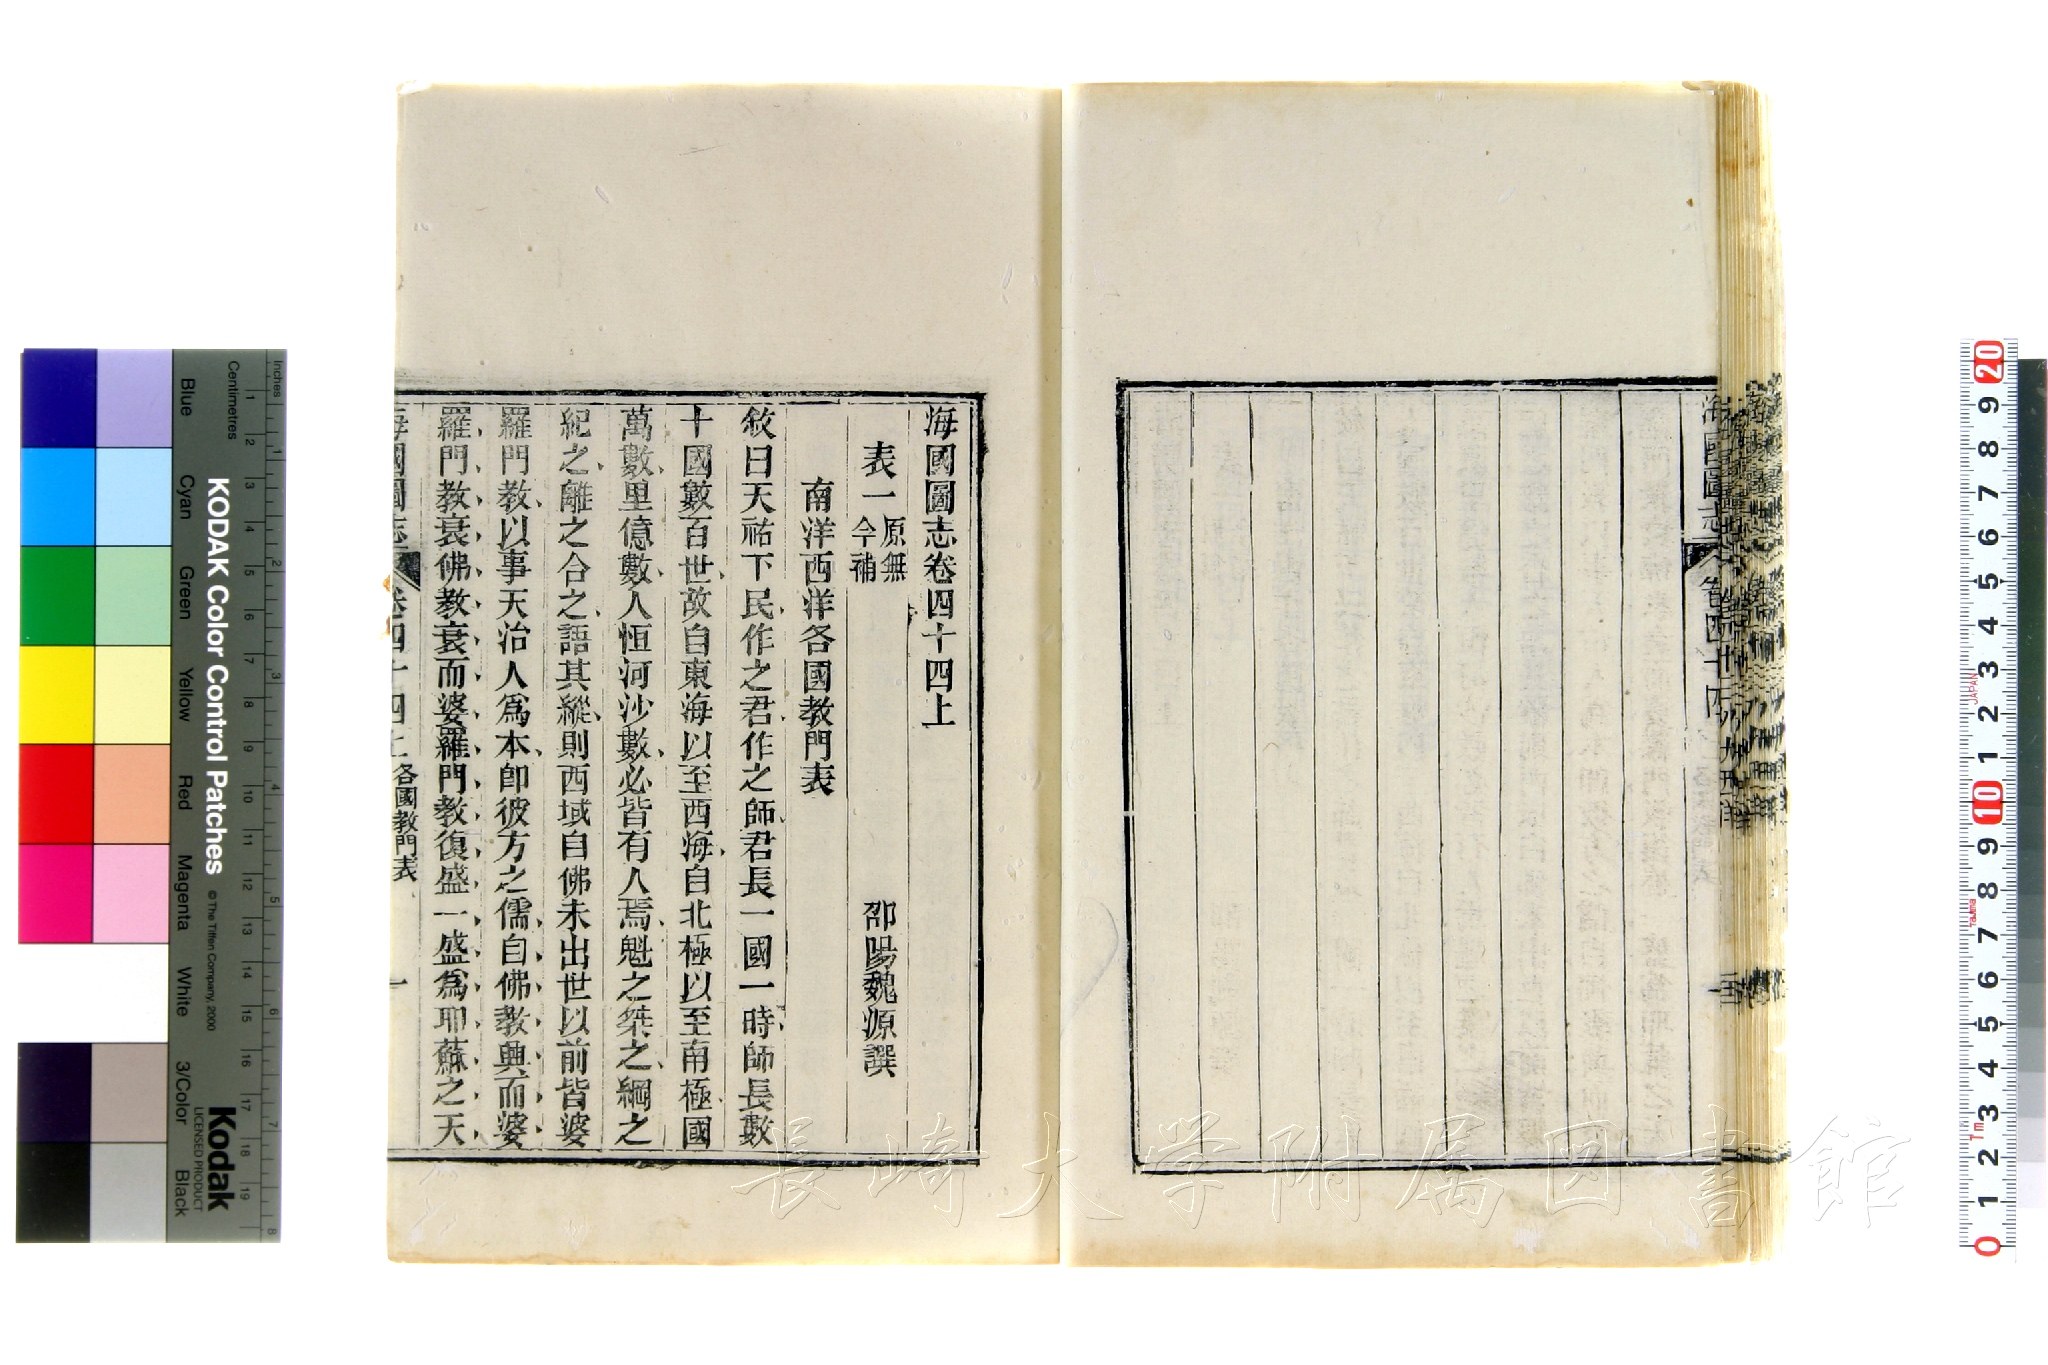 海國圖志卷四十四上
表一 原無今補 邵陽魏源譔
南洋西洋各國教門表
敘曰天祐下民作之君作之師君長一國一時師長數
十國數百世故自東海以至西海自北極以至南極國
萬數里億數人恒河沙數必皆有人焉魁之桀之綱之
紀之離之合之語其縱則西域自佛未出世以前皆婆
羅門教以事天治人爲本卽彼方之儒自佛教興而婆
羅門教衰佛教衰而婆羅門教復盛一盛爲耶蘇之天
海國圖志 卷四十四上 各國教門表 一
海國圖志
長崎大学附属図書館
Inches
Centimetres
KODAK Color Control Patches
© The Tiffen Company, 2000
Kodak
LICENSED PRODUCT
Blue
Cyan
Green
Yellow
Red
Magenta
White
3/Color
Black
1 2 3 4 5 6 7 8 9 10 11 12 13 14 15 16 17 18 19
1 2 3 4 5 6 7 8
20 9 8 7 6 5 4 3 2 1 10 9 8 7 6 5 4 3 2 1 0
JAPAN